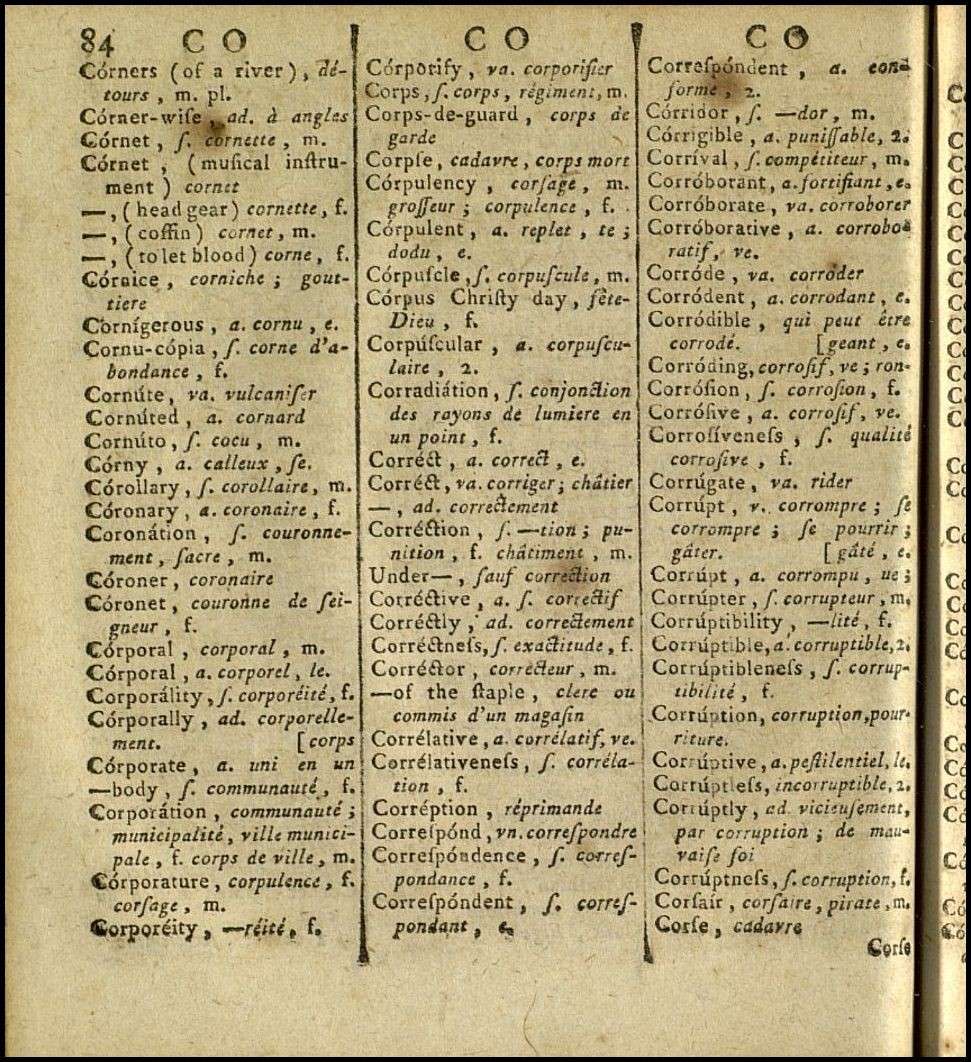 84 C O
Córners (of a river), dé-
tours, m. pl.
Córner-wiſe, ad. à angles
Córnet, ſ. cornette, m.
Córnet, (muſical inſtru-
ment) cornet
—, (head gear) cornette, f.
—, (coffin) cornet, m.
—, (to let blood) corne, f.
Córnice, corniche; gout-
tiere
Cornígerous, a. cornu, e.
Cornu-cópia, ſ. corne d'a-
bondance, f.
Cornúte, va. vulcaniſer
Cornúted, a. cornard
Cornúto, ſ. cocu, m.
Córny, a. calleux, ſe.
Córollary, ſ. corollaire, m.
Córonary, a. coronaire, f.
Coronátion, ſ. couronne-
ment, ſacre, m.
Córoner, coronaire
Córonet, couronne de ſei-
gneur, f.
Córporal, corporal, m.
Córporal, a. corporel, le.
Corporálity, ſ. corporéité, f.
Córporally, ad. corporelle-
ment. [corps
Córporate, a. uni en un
—body, ſ. communauté, f.
Corporátion, communauté;
municipalité, ville munici-
pale, f. corps de ville, m.
Córporature, corpulence, f.
corſage, m.
Corporéity, —réité, f.
C O
Córporify, va. corporifier
Corps, ſ. corps, régiment, m.
Corps-de-guard, corps de
garde
Corpſe, cadavre, corps mort
Córpulency, corſage, m.
groſſeur; corpulence, f.
Córpulent, a. replet, te;
dodu, e.
Córpuſcle, ſ. corpuſcule, m.
Córpus Chriſty day, fête-
Dieu, f.
Corpúſcular, a. corpuſcu-
laire, 2.
Corradiátion, ſ. conjonction
des rayons de lumiere en
un point, f.
Corréct, a. correct, e.
Corréct, va. corriger; châtier
—, ad. correctement
Corréction, ſ. —tion; pu-
nition, f. châtiment, m.
Under—, ſauf correction
Corréctive, a. ſ. correctif
Corréctly, ad. correctement
Corréctneſs, ſ. exactitude, f.
Corréctor, correcteur, m.
—of the ſtaple, clerc ou
commis d'un magaſin
Corrélative, a. corrélatif, ve.
Corrélativeneſs, ſ. corréla-
tion, f.
Corréption, réprimande
Correſpónd, vn. correſpondre
Correſpóndence, ſ. correſ-
pondance, f.
Correſpóndent, ſ. correſ-
pondant, e.
C O
Correſpóndent, a. con-
forme, 2.
Córridor, ſ. —dor, m.
Córrigible, a. puniſſable, 2.
Corríval, ſ. compétiteur, m.
Corróborant, a. fortifiant, e.
Corróborate, va. corroborer
Corróborative, a. corrobo-
ratif, ve.
Corróde, va. corroder
Corródent, a. corrodant, e.
Corródible, qui peut être
corrodé. [geant, e.
Corróding, corroſif, ve; ron-
Corróſion, ſ. corroſion, f.
Corróſive, a. corroſif, ve.
Corroſíveneſs, ſ. qualité
corroſive, f.
Corrúgate, va. rider
Corrúpt, v. corrompre; ſe
corrompre; ſe pourrir;
gâter. [gâté, e.
Corrúpt, a. corrompu, ue;
Corrúpter, ſ. corrupteur, m.
Corrúptibility, —lité, f.
Corrúptible, a. corruptible, 2.
Corrúptibleneſs, ſ. corrup-
tibilité, f.
Corrúption, corruption, pour-
riture.
Corrúptive, a. peſtilentiel, le.
Corrúptleſs, incorruptible, 2.
Corrúptly, ad. vicieuſement,
par corruption; de mau-
vaiſe foi
Corrúptneſs, ſ. corruption, f.
Corſair, corſaire, pirate, m.
Corſe, cadavre
Corſe